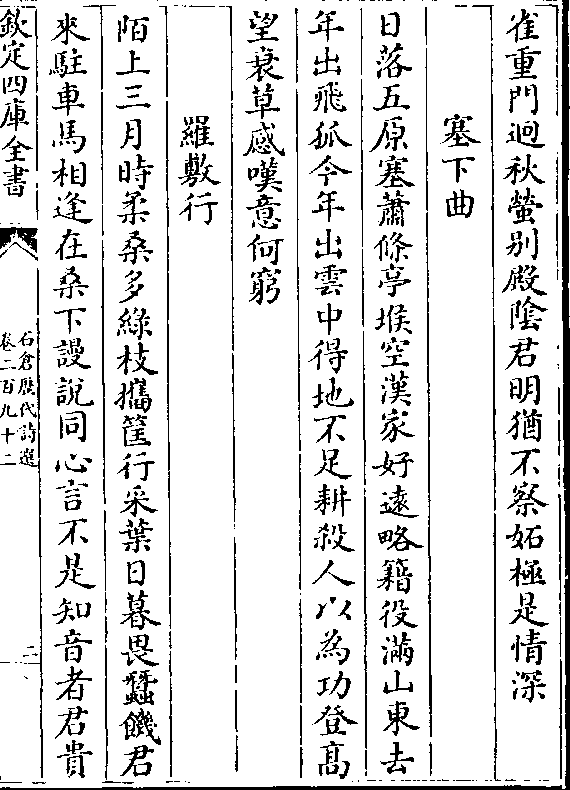 雀重門迥秋螢别殿隂君明猶不察妬極是情深
塞下曲
日落五原塞蕭條亭堠空漢家好遠略籍役滿山東去
年出飛狐今年出雲中得地不足耕殺人以為功登髙
望衰草感嘆意何窮
羅敷行
陌上三月時柔桑多綠枝攜筐行采葉日暮畏蠶饑君
來駐車馬相逢在桑下謾說同心言不是知音者君貴
欽定四庫全書
石倉歴代詩選
卷二百九十二
二